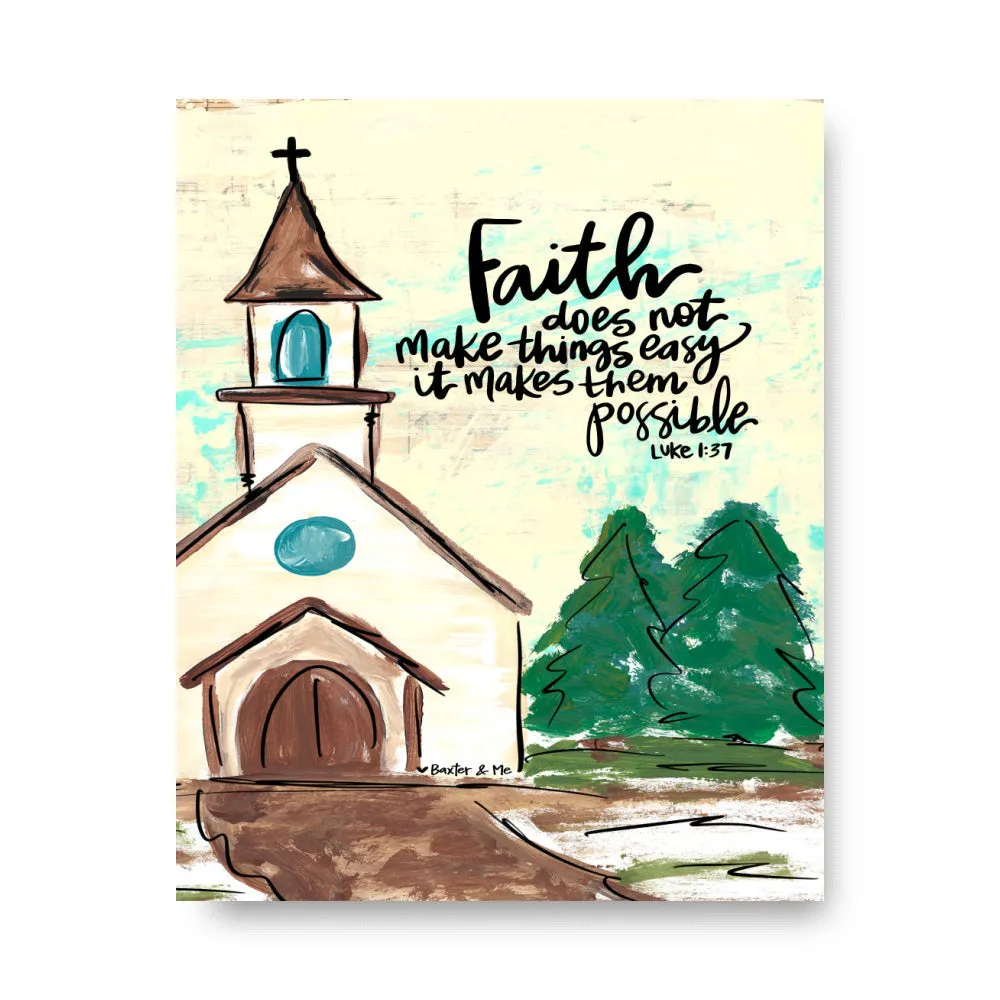 Faith
does not
make things easy
it makes them
possible
Luke 1:37
Baxter & Me